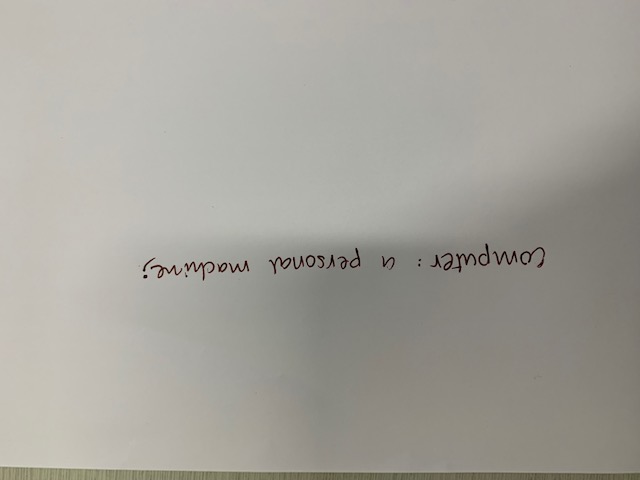 computer: a personal machine;